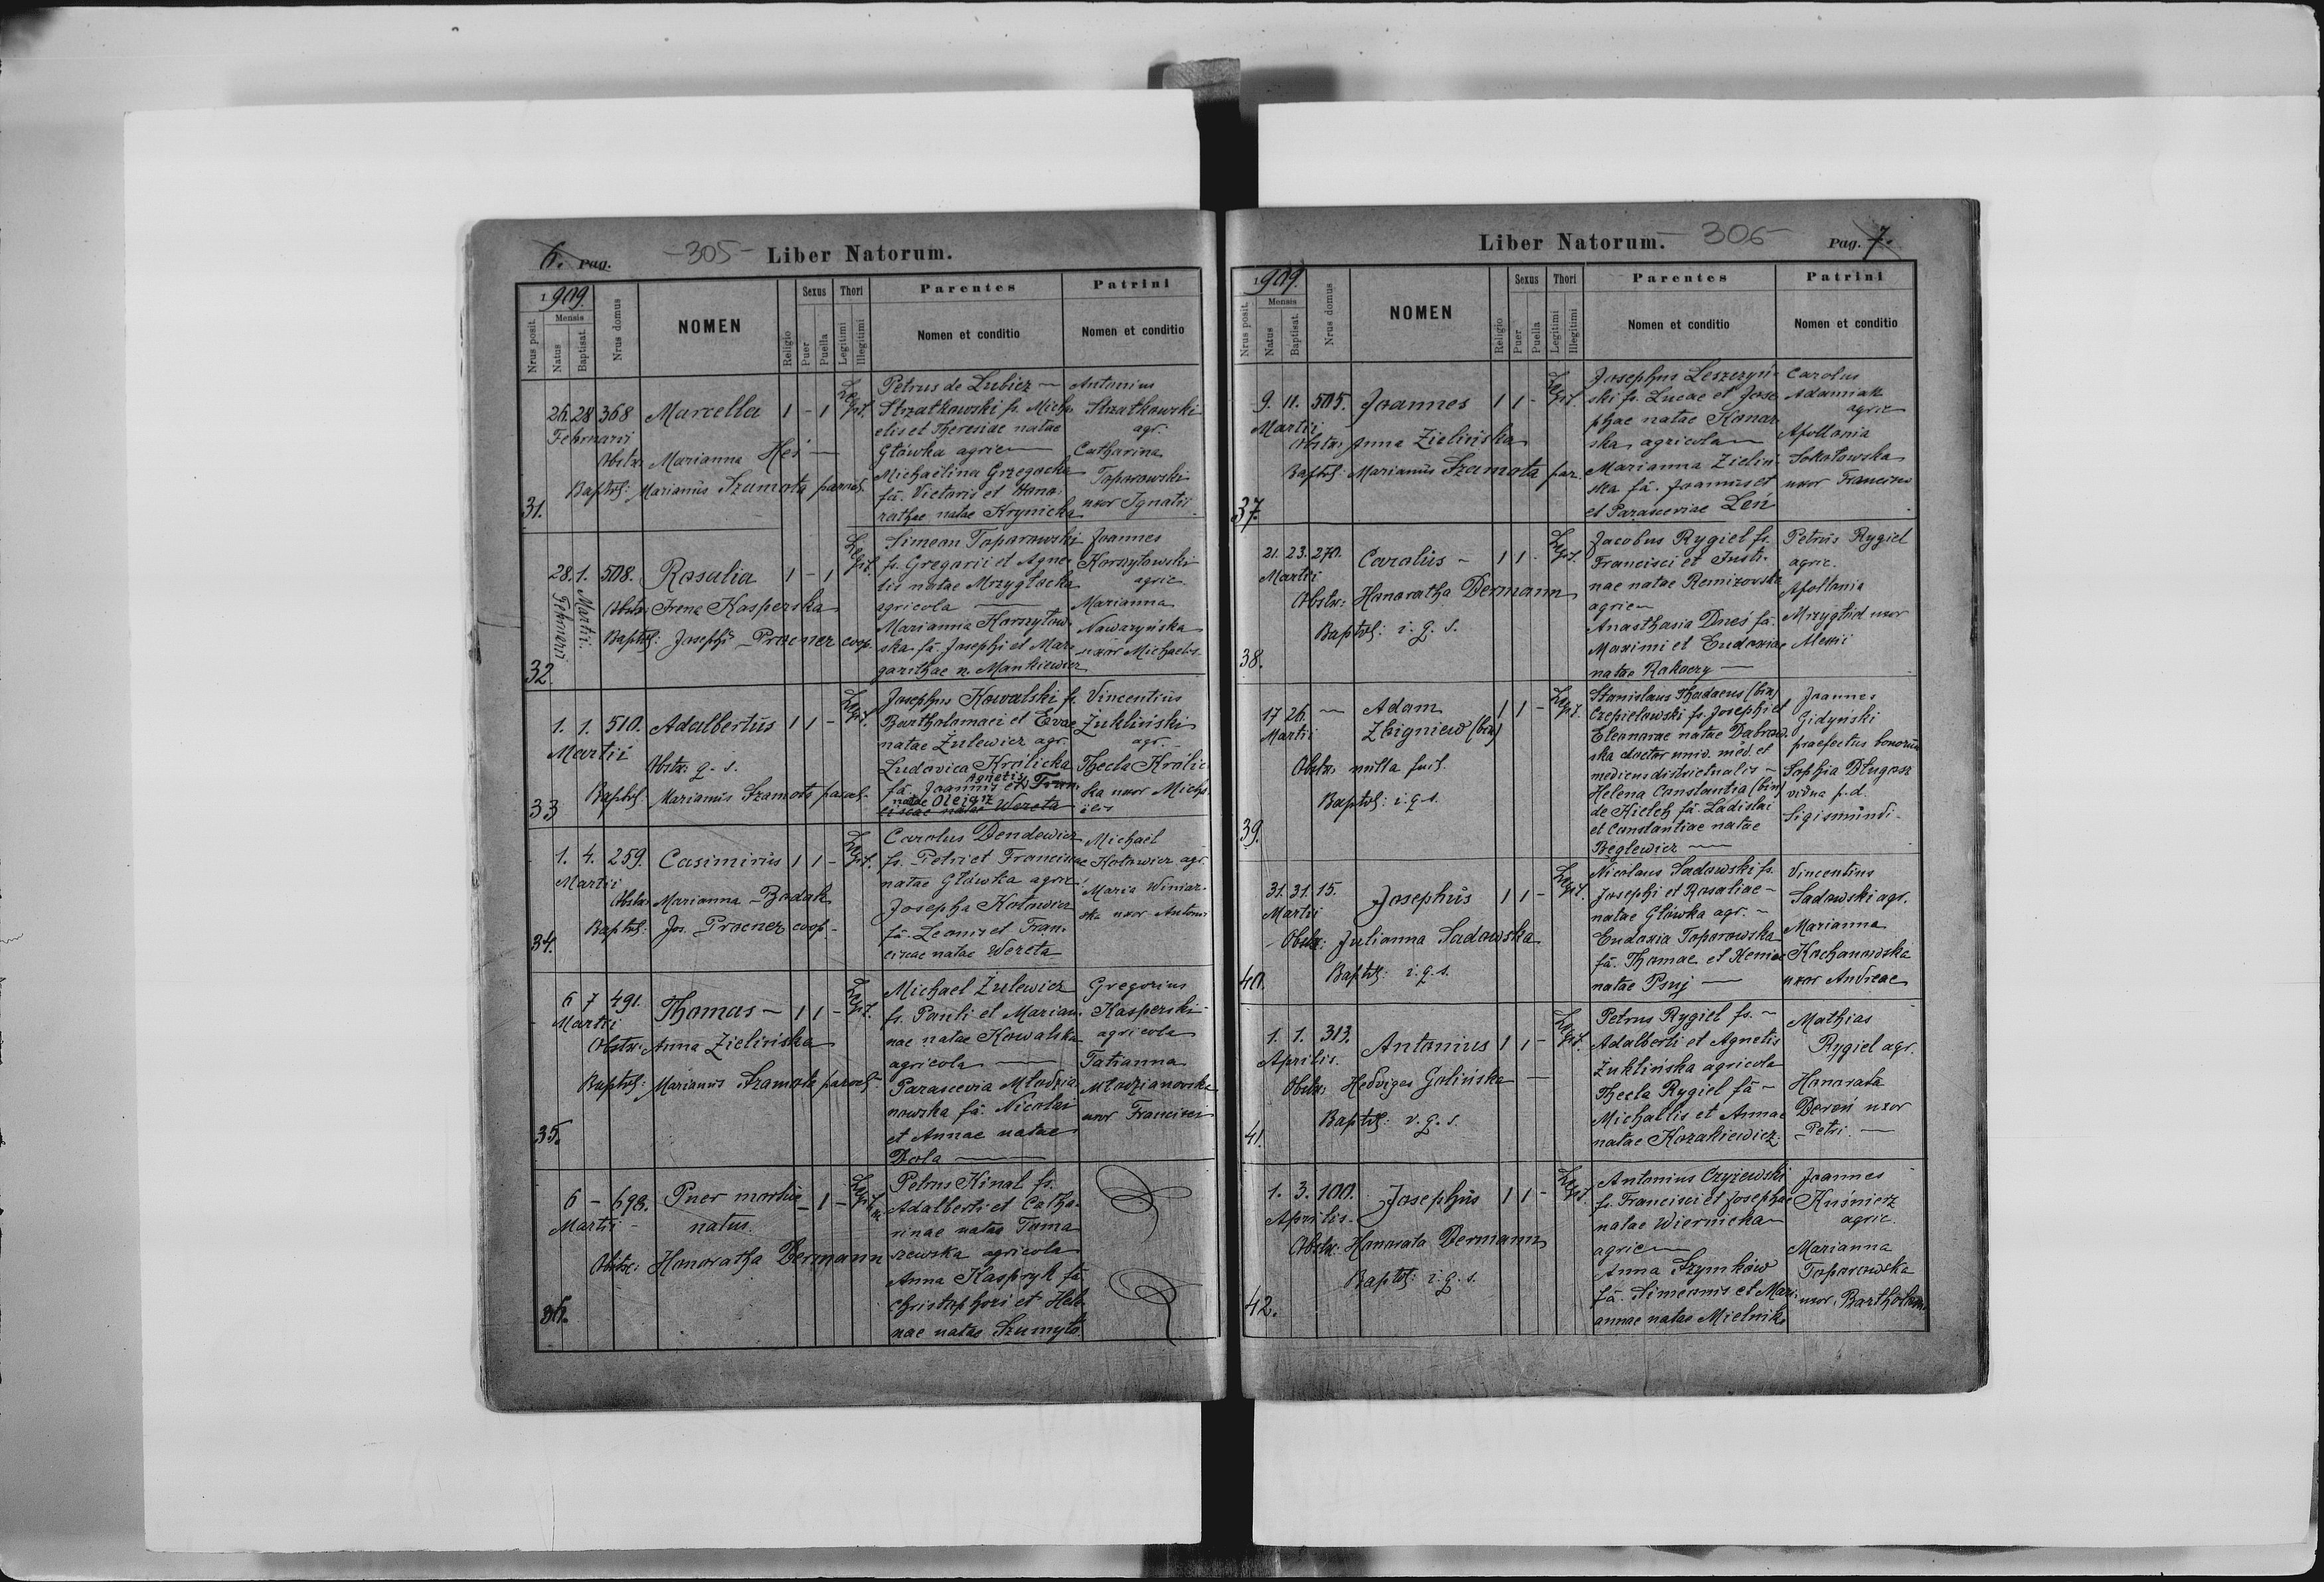 6. Pag.
-305-
Liber Natorum.
1909.
Nrus posit.
Mensis
Natus
Baptisat.
Nrus domus
NOMEN
Religio
Sexus
Puer
Puella
Thori
Legitimi
Illegitimi
Parentes
Nomen et conditio
Patrini
Nomen et conditio
31.
26. 28 368 Marcella 1 - 1 Legit.
Februarii
Obstx: Marianna Heś
Baptsf: Marianus Szamota paroch.
Petrus de Lubicz
Strzałkowski fs. Micha
elis et Theresiae natae
Główka agric
Michaëlina Grzegocka
fa. Victoris et Hono-
rathae natae Krynicka
Antonius
Strzałkowski
agr.
Catharina
Toporowski
uxor Ignatii
32.
28. 1. 508. Rosalia 1 - 1 Legit.
Februarii Martii.
Obstx: Irena Kasperska
Baptsf: Josephs Procner coop.
Simeon Toporowski
fs. Gregorii et Agne-
tis natae Mrzygłocka
agricola
Marianna Korzytow-
ska fa. Josephi et Mar-
garithae n. Mankiewicz
Joannes
Korzytowski
agric.
Marianna
Nowaryńska
uxor Michaelis
33
1. 1. 510. Adalbertus 1 1 - Legit.
Martii
Obstx: q. s.
Baptsf: Marianus Szamota paroch.
Josephus Kowalski fs.
Bartholomaei et Evae
natae Żulewicz agr.
Ludovica Królicka
fa. Joannis et Fran-
Agnetis
natae Olejarz
ciscae natae Wereta
Vincentius
Żukliński
agr.
Thecla Królic
ka uxor Micha
ëlis
34.
1. 4. 259. Casimirus 1 1 - Legit.
Martii
Obstx: Marianna Bodak
Baptsf: Jos. Procner coop.
Carolus Dendewicz
fs. Petri et Franciscae
natae Główka agric
Josepha Kotowicz
fa. Leonis et Fran-
ciscae natae Wereta
Michael
Kotowicz agr.
Maria Winiar-
ska uxor Antonii
35.
6 7 491. Thomas - 1 1 - Legit.
Martii
Obstx: Anna Zielińska
Baptsf: Marianus Szamota paroch.
Michael Żulewicz
fs. Pauli et Marian-
nae natae Kowalska
agricola
Parascevia Młodzia
nowska fa. Nicolai
et Annae natae
Dola
Gregorius
Kasperski
agricola
Tatianna
Młodzianowska
uxor Francisci
36.
6 - 698. Puer mortuus - 1 - Legit.
Martii natus.
Obstx: Honoratha Dermann
Petrus Kinal fs.
Adalberti et Catha-
rinae natae Toma
szewska agricola
Anna Kaspryk fa.
Christophori et Hele
nae natae Szumyło
Liber Natorum.
- 306 -
Pag. 7.
1909.
Nrus posit.
Mensis
Natus
Baptisat.
Nrus domus
NOMEN
Religio
Sexus
Puer
Puella
Thori
Legitimi
Illegitimi
Parentes
Nomen et conditio
Patrini
Nomen et conditio
37.
9. 11. 505. Joannes 1 1 - Legit.
Martii
Obstx: Anna Zielińska
Baptsf: Marianus Szamota par.
Josephus Leszczyń-
ski fs. Lucae et Jose
phae natae Konar
ska agricola
Marianna Zieliń
ska fa. Joannis et
et Parasceviae Leń
Carolus
Adamiak
agric
Apollonia
Sokołowska
uxor Francisci
38.
21. 23. 270. Carolus - 1 1 - Legit.
Martii
Obstx: Honoratha Dermann
Baptsf: i. q. s.
Jacobus Rygiel fs.
Francisci et Justi-
nae natae Remizowska
agric
Anasthasia Dneś fa.
Maximi et Eudoxiae
natae Rakoczy
Petrus Rygiel
agric.
Apollonia
Mrzygłód uxor
Alexii
39.
17 26. - Adam 1 1 - Legit.
Martii Zbigniew (bin)
Obstx: nulla fuit.
Baptsf: i. q. s.
Stanislaus Thadaeus (bin)
Czepielowski fs. Josephi et
Eleonorae natae Dąbrow-
ska doctor univ. med. et
medicus districtualis -
Helena Constantia (bin)
de Kieleh fa. Ladislai
et Constantiae natae
Beglewicz
Joannes
Jidyński
praefectus bonorum
Sophia Długosz
vidua p. d.
Sigismundi
40.
31. 31. 15. Josephus 1 1 - Legit.
Martii
Obstx: Julianna Sadowska
Baptsf: i. q. s.
Nicolaus Sadowski fs.
Josephi et Rosaliae -
natae Główka agr. -
Eudoxia Toporowska
fa. Thomae et Xeniae
natae Psuj
Vincentius
Sadowski agr.
Marianna
Kochanowska
uxor Andreae
41.
1. 1. 313. Antonius 1 1 - Legit.
Aprilis.
Obstx: Hedviges Golińska
Baptsf: v. q. s.
Petrus Rygiel fs. -
Adalberti et Agnetis
Żuklińska agricola
Thecla Rygiel fa -
Michaelis et Annae
natae Kozakiewicz
Mathias
Rygiel agr.
Honorata
Deroń uxor
Petri.
42.
1. 3. 100. Josephus 1 1 - Legit.
Aprilis.
Obstx: Honorata Dermann
Baptsf: i. q. s.
Antonius Czyżewski
fs. Francisci et Josephae
natae Wiernicka
agric
Anna Szymków
fa. Simeonis et Mari-
annae natae Mielnik
Joannes
Kuśnierz
agric.
Marianna
Toporowska
uxor Bartholom.